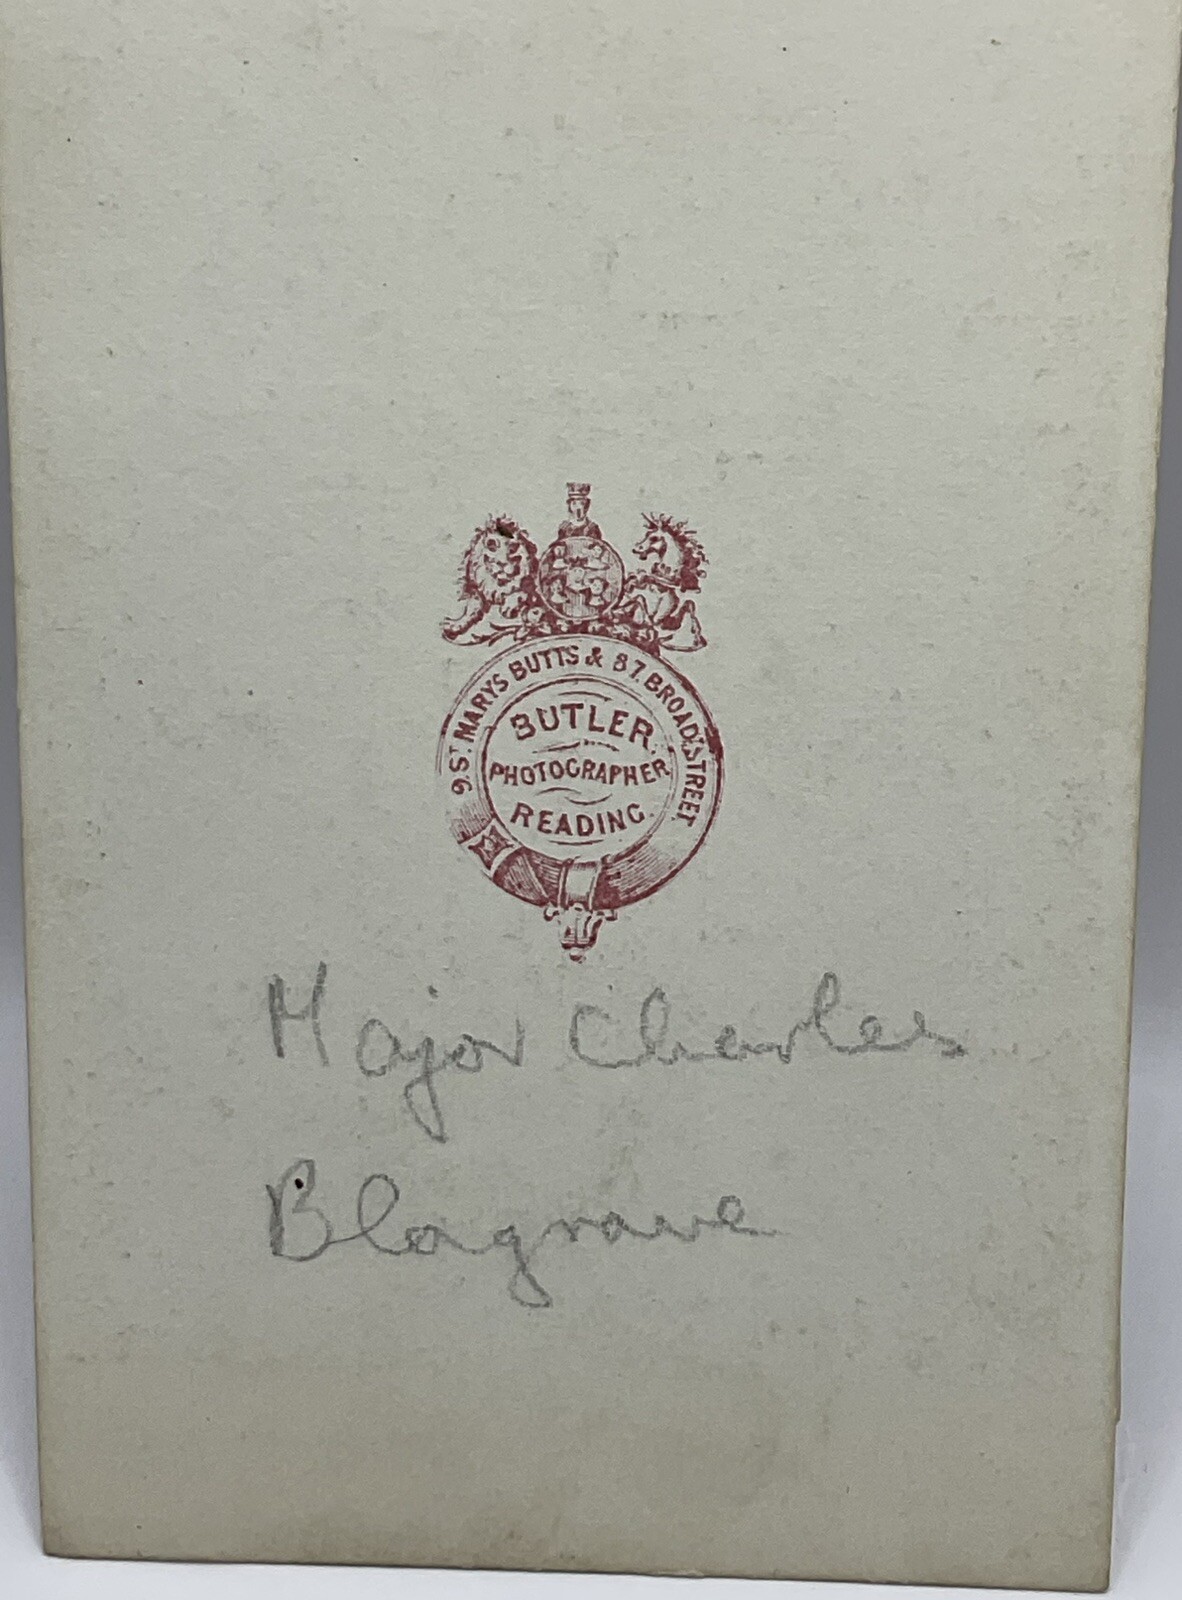 9 ST MARYS BUTTS & 87. BROAD STREET
BUTLER.
PHOTOGRAPHER
READING.
Major Charles
Blagrave